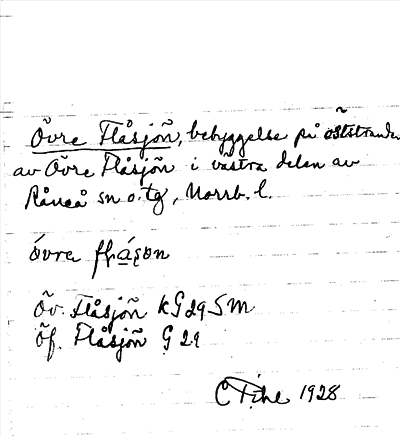 Övre Flåsjön, bebyggelse på öststranden
av Övre Flåsjön i västra delen av
Råneå sn o. tg, Norrb. l.
övra
Öv. Flåsjön KG29SM
Öf. Flåsjön G29
1928